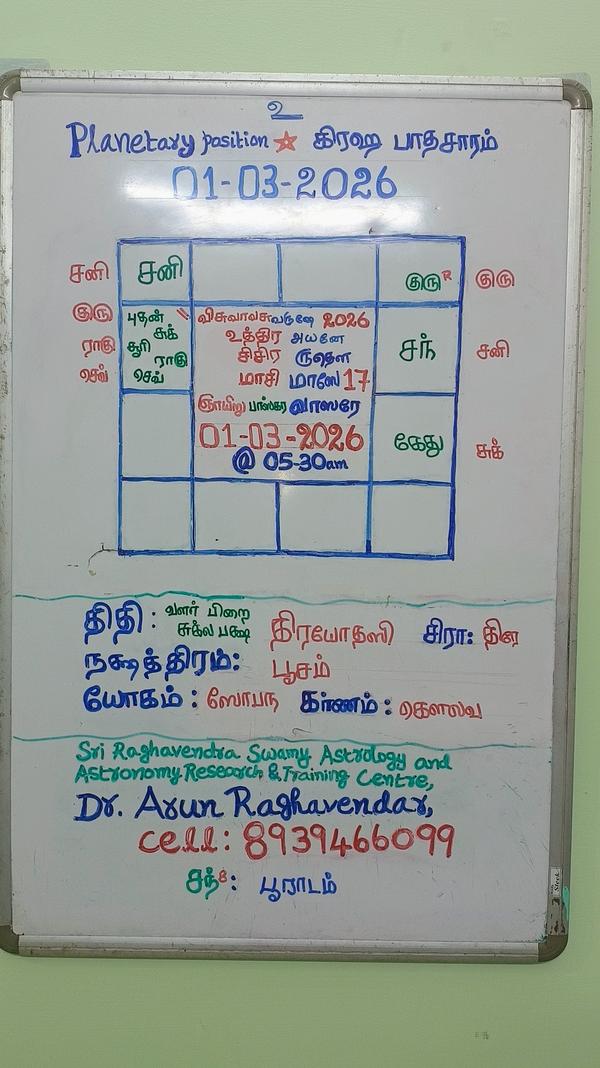 உ
Planetary position ☆ கிரஹ பாதசாரம்
01-03-2026
சனி சனி குரு R குரு
குரு
ராகு
செவ்
புதன் "
சுக்
சூரி
ராகு
செவ்
விசுவாவசுவருஷே 2026
உத்திர அயனே
சிசிர ருதௌ
மாசி மாஸே 17
ஞாயிறு பாஸ்கர வாஸரே
01-03-2026
@ 05-30am
சந் சனி
கேது சுக்
திதி : வளர் பிறை
சுக்ல பக்ஷ திரயோதஸி சிரா: தின
நக்ஷத்திரம்: பூசம்
யோகம் : ஸோபந கர்ணம் : கௌலவ
Sri Raghavendra Swamy Astrology and
Astronomy Research & Training Centre,
Dr. Arun Raghavendar,
cell: 8939466099
சந் 8 : பூராடம்